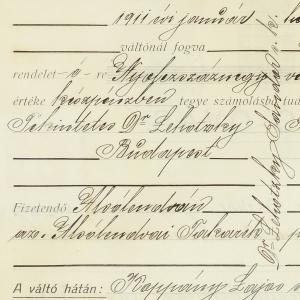 1911 évi január
váltónál fogva
rendelet-é-re Nyolczszáznegy
értéke készpénzben tegye számolásba
Tekintetes Dr Lehotzky
Budapest
Fizetendő Alsólendván
az Alsólendvai Takarék
A váltó hátán: Koppány Lajos
Dr Lehotzky Sándor s. k.